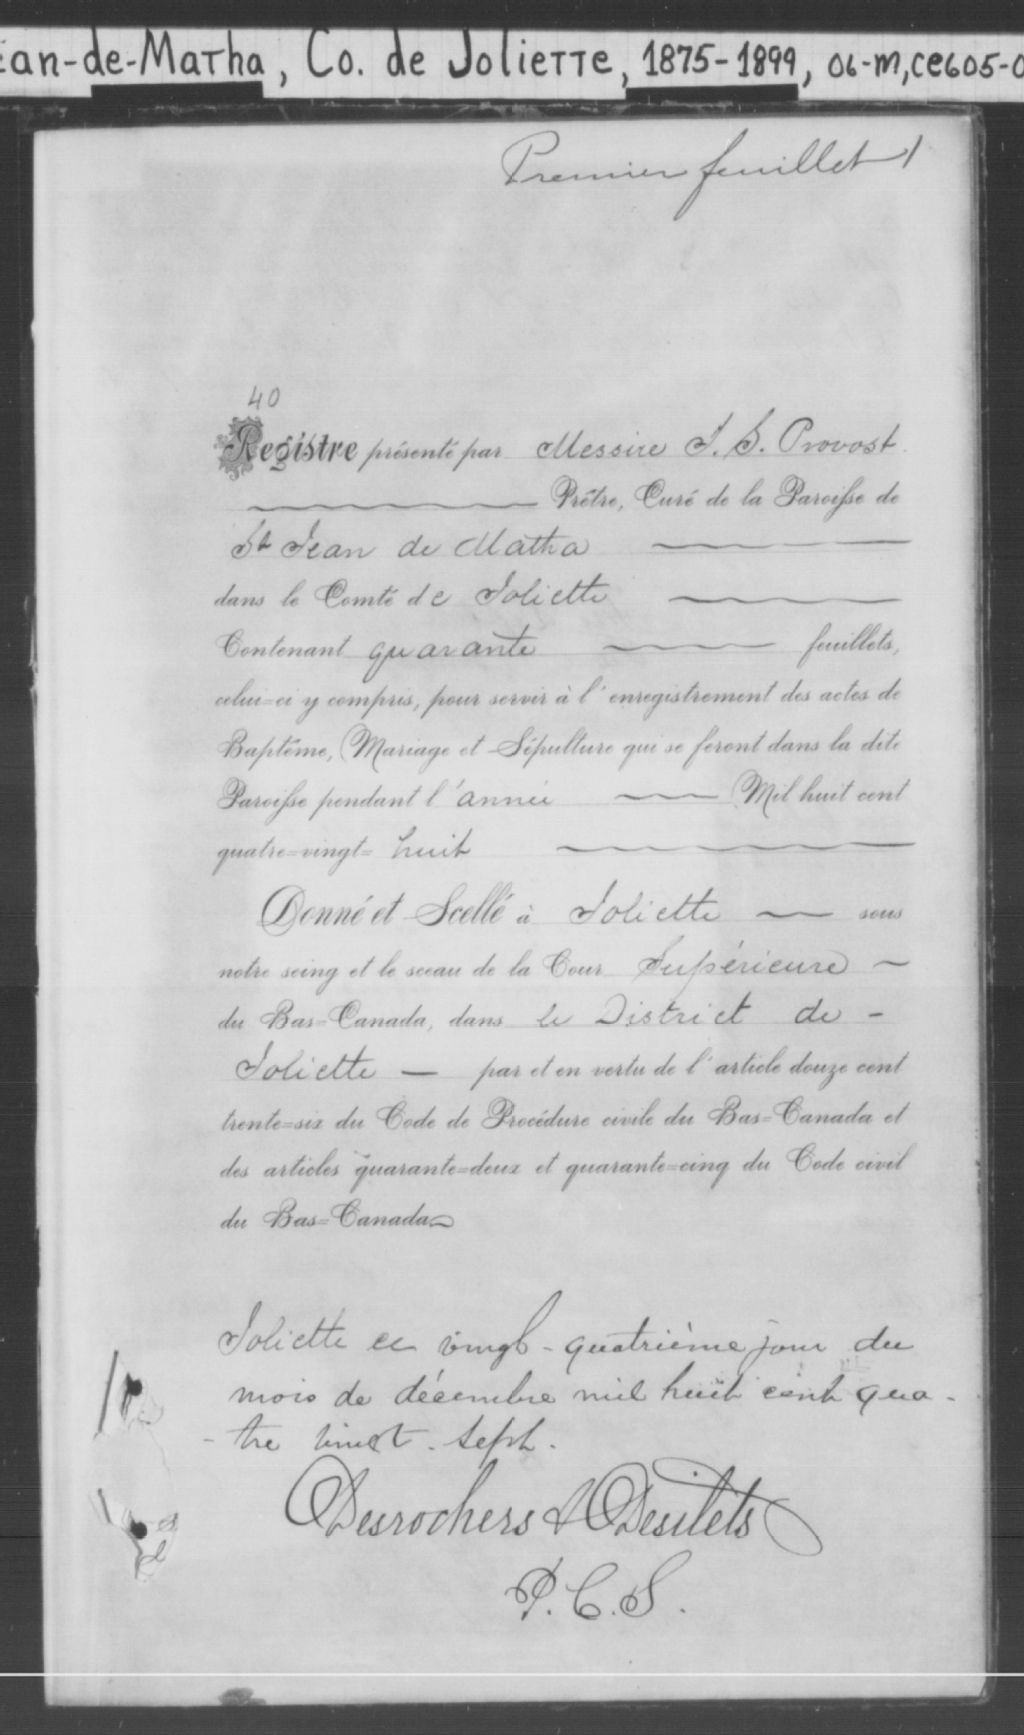 ean-de-Matha, Co. de Joliette, 1875-1899, 06-M,CE605-0
Premier feuillet 1
40
Registre présenté par Messire J. B. Provost
Prêtre, Curé de la Paroisse de
St Jean de Matha
dans le Comté de Joliette
Contenant quarante feuillets,
celui=ci y compris, pour servir à l'enregistrement des actes de
Baptême, Mariage et Sépulture qui se feront dans la dite
Paroisse pendant l'année Mil huit cent
quatre=vingt=huit
Donné et Scellé à Joliette — sous
notre seing et le sceau de la Cour Supérieure -
du Bas=Canada, dans le District de -
Joliette — par et en vertu de l'article douze cent
trente=six du Code de Procédure civile du Bas=Canada et
des articles quarante=deux et quarante=cinq du Code civil
du Bas=Canada
Joliette ce vingt-quatrième jour du
mois de décembre mil huit cent qua-
-tre vingt-sept.
Desrochers & Desilets
P.C.S.